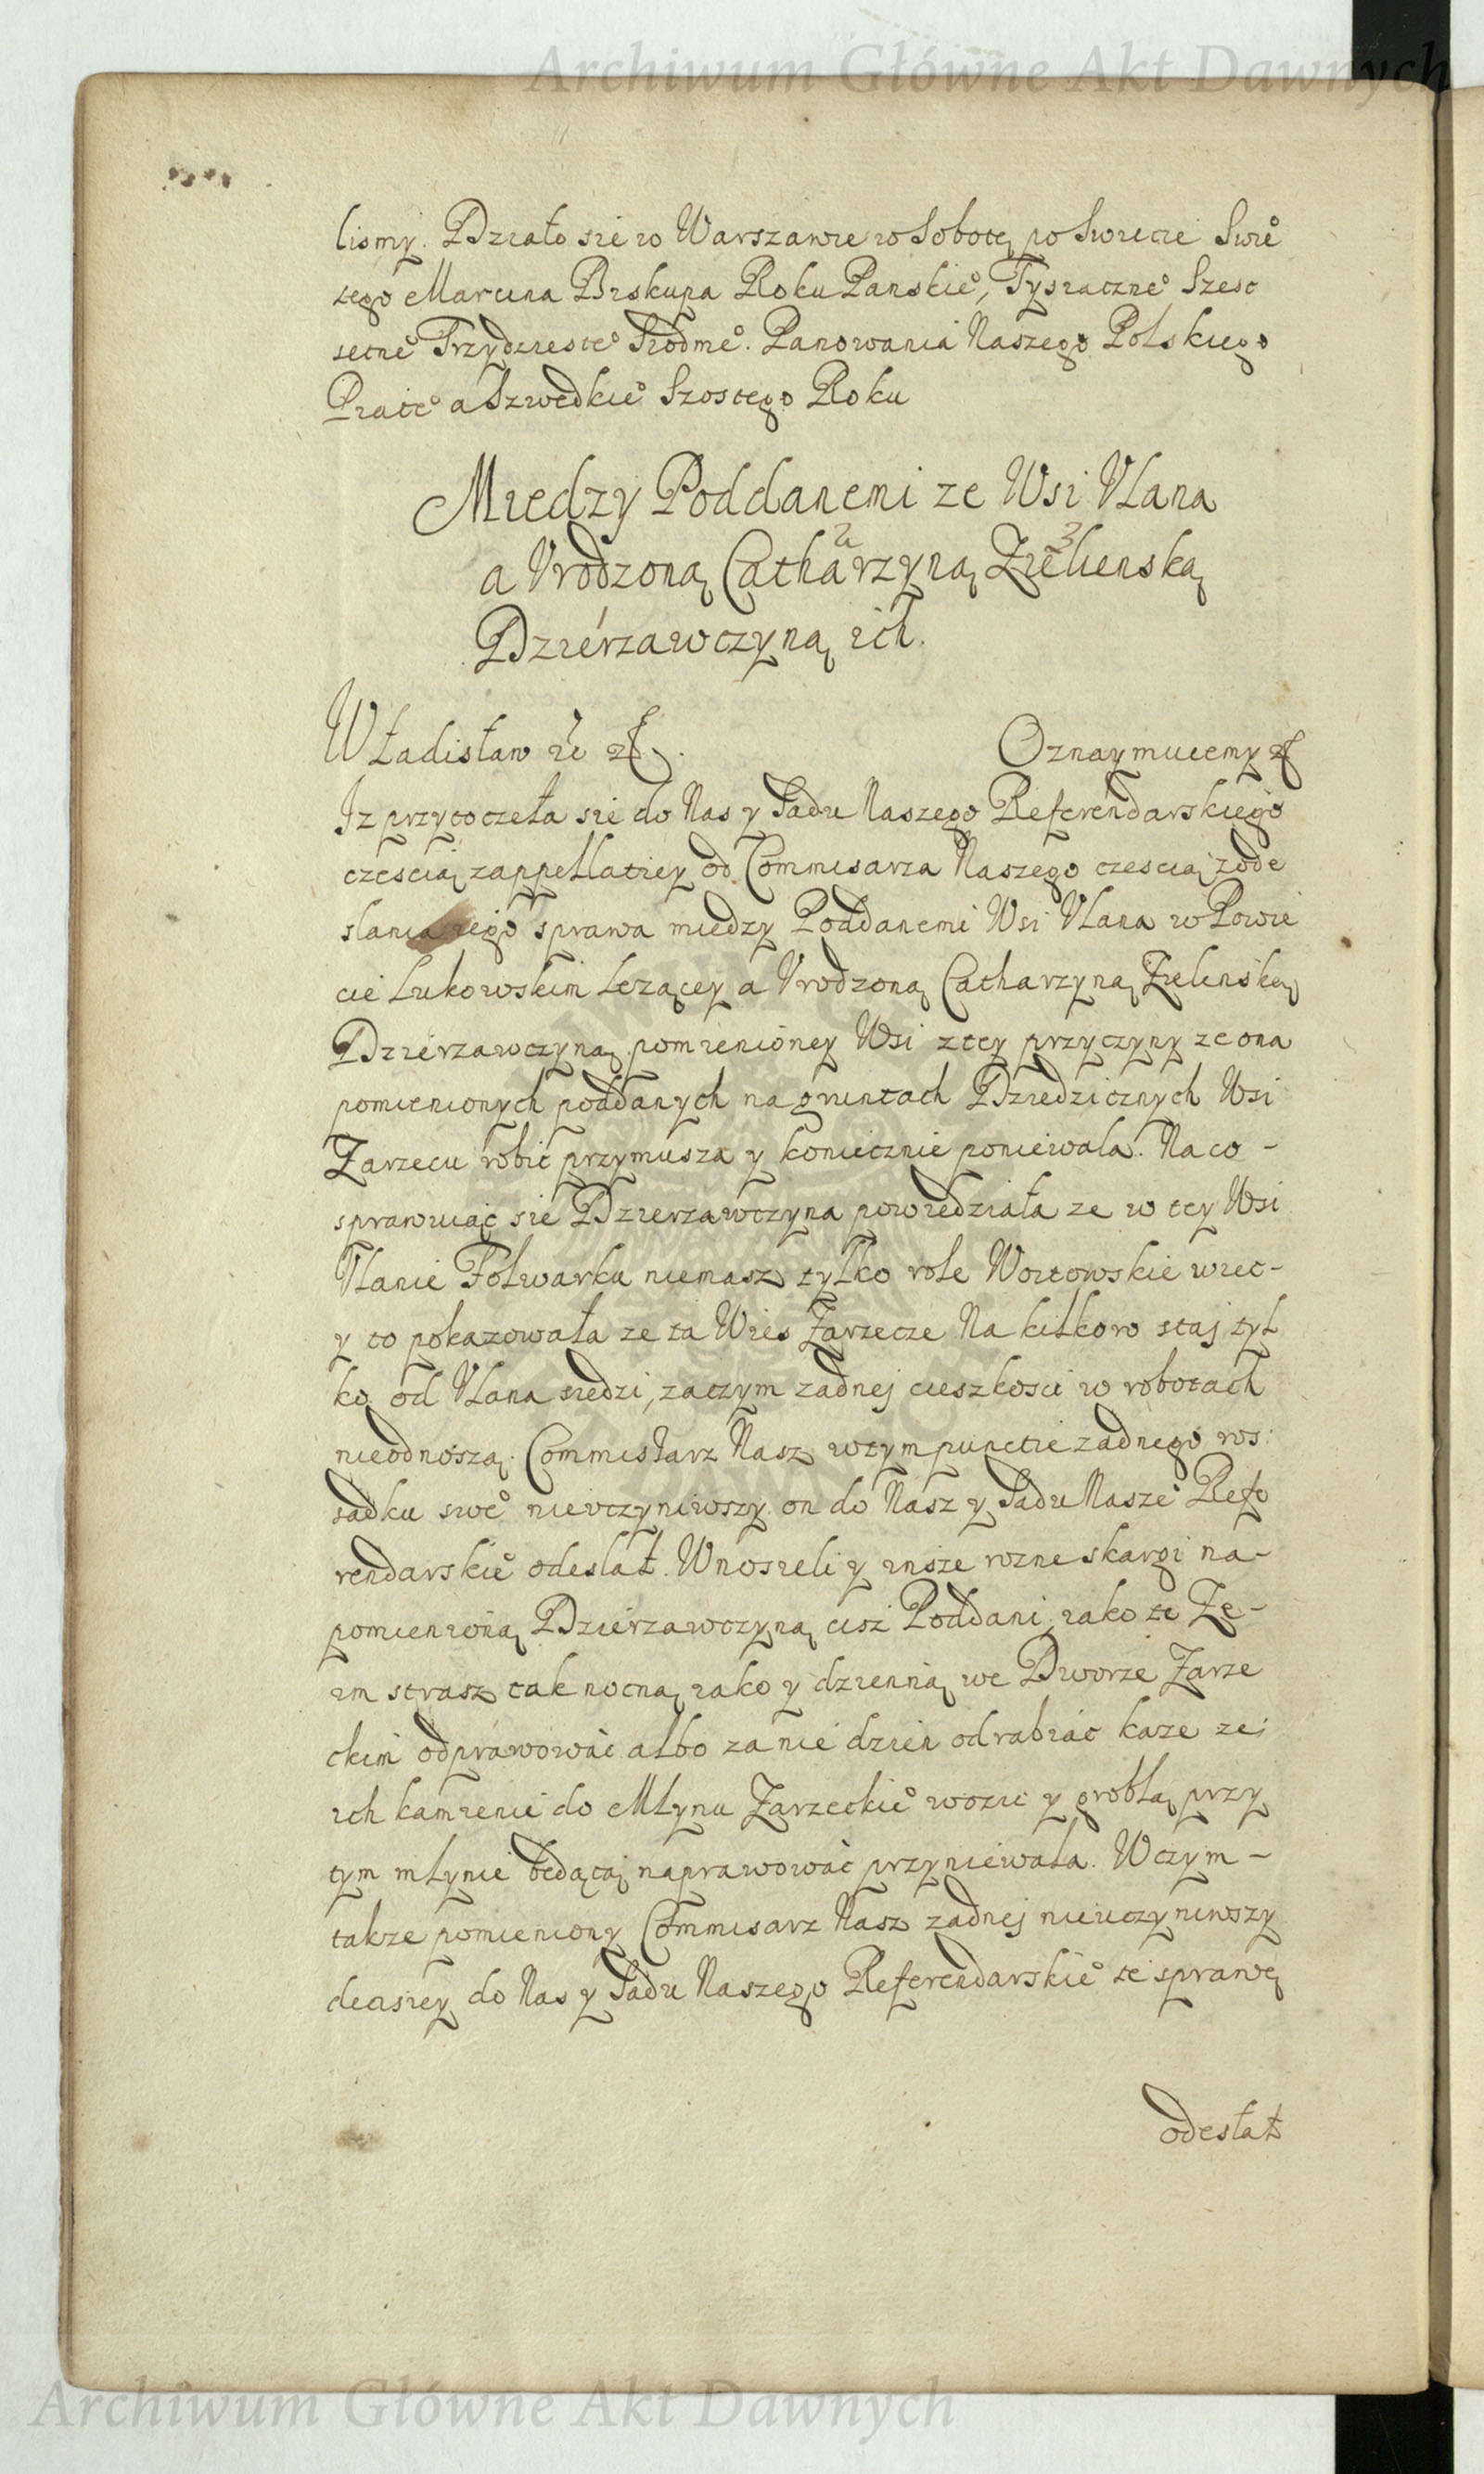 Archiwum Główne Akt Dawnych
lismy. Działo sie w Warszawie w Sobotę po Swiecie Swie°
tego Marcina Biskupa Roku Panskie°, Tysiaczne° Szesc
setne° Trzydzieste° Siodme°. Panowania Naszego Polskiego
Piate° a Szwedkie° Szostego Roku
Miedzy Poddanemi ze Wsi Vlana
a Vrodzoną Catharzyną Zielienską
Dzierzawczyną ich.
Władisław etc
Oznaymuiemy etc
Iz przytoczeła sie do Nas y Sadu Naszego Referendarskiego
czescią zappellatiey od Commisarza Naszego czescią zode
slania iego sprawa miedzy Poddanemi Wsi Vlana w Powie
cie Lukowskim lezącey a Vrodzoną Catharzyną Zielinską
Dzierzawczyną pomienioney Wsi z tey przyczyny ze ona
pomienionych poddanych na gruntach Dziedzicznych Wsi
Zarzecu robic przymusza y koniecznie poniewala. Na co -
sprawuiąc sie Dzierzawczyna powiedziała ze w tey Wsi
Vlanie Folwarku niemasz tylko role Woitowskie wiec -
y to pokazowała ze ta Wies Zarzecze Na kilkoro staj tyl
ko od Vlana siedzi, zaczym zadnej cieszkosci w robotach
nieodnoszą. Commissarz Nasz wtym punctie zadnego ros:
sadku swe° nievczyniwszy on do Nasz y Sadu Nasze° Refe
rendarskie° odeslał. Wnosieli y insze rozne skargi na -
pomienioną Dzierzawczyną cisz Poddani, iako te Ze -
im strasz tak nocną iako y dzienną we Dworze Zarze
ckim odprawować albo za nie dzien odrabiać kaze ze
ich kamienie do Młynu Zarzeckie° wozic y groblą przy
tym młynie będącą naprawować przyniewała. W czym -
takze pomieniony Commisarz Nasz zadnej nieuczyniwszy
decisiey do Nas y Sadu Naszego Referendarskie° te sprawę
odesłał
Archiwum Główne Akt Dawnych